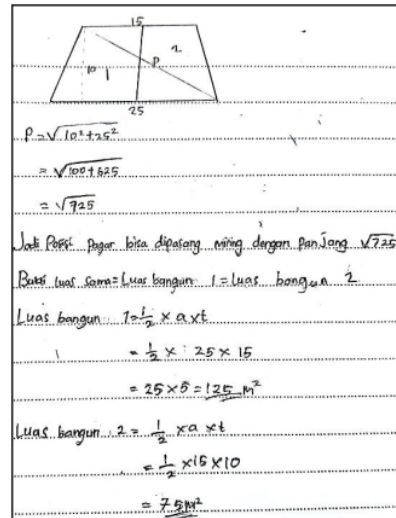 15
2
10 1 P
25
P = √10²+25²
= √100+625
= √725
Jadi Posisi pagar bisa dipasang miring dengan panjang √725
Bukti luas sama = Luas bangun 1 = luas bangun 2
Luas bangun 1 = 1/2 x a x t
= 1/2 x 25 x 15
= 25 x 5 = 125 m²
Luas bangun 2 = 1/2 x a x t
= 1/2 x 15 x 10
= 75 m²